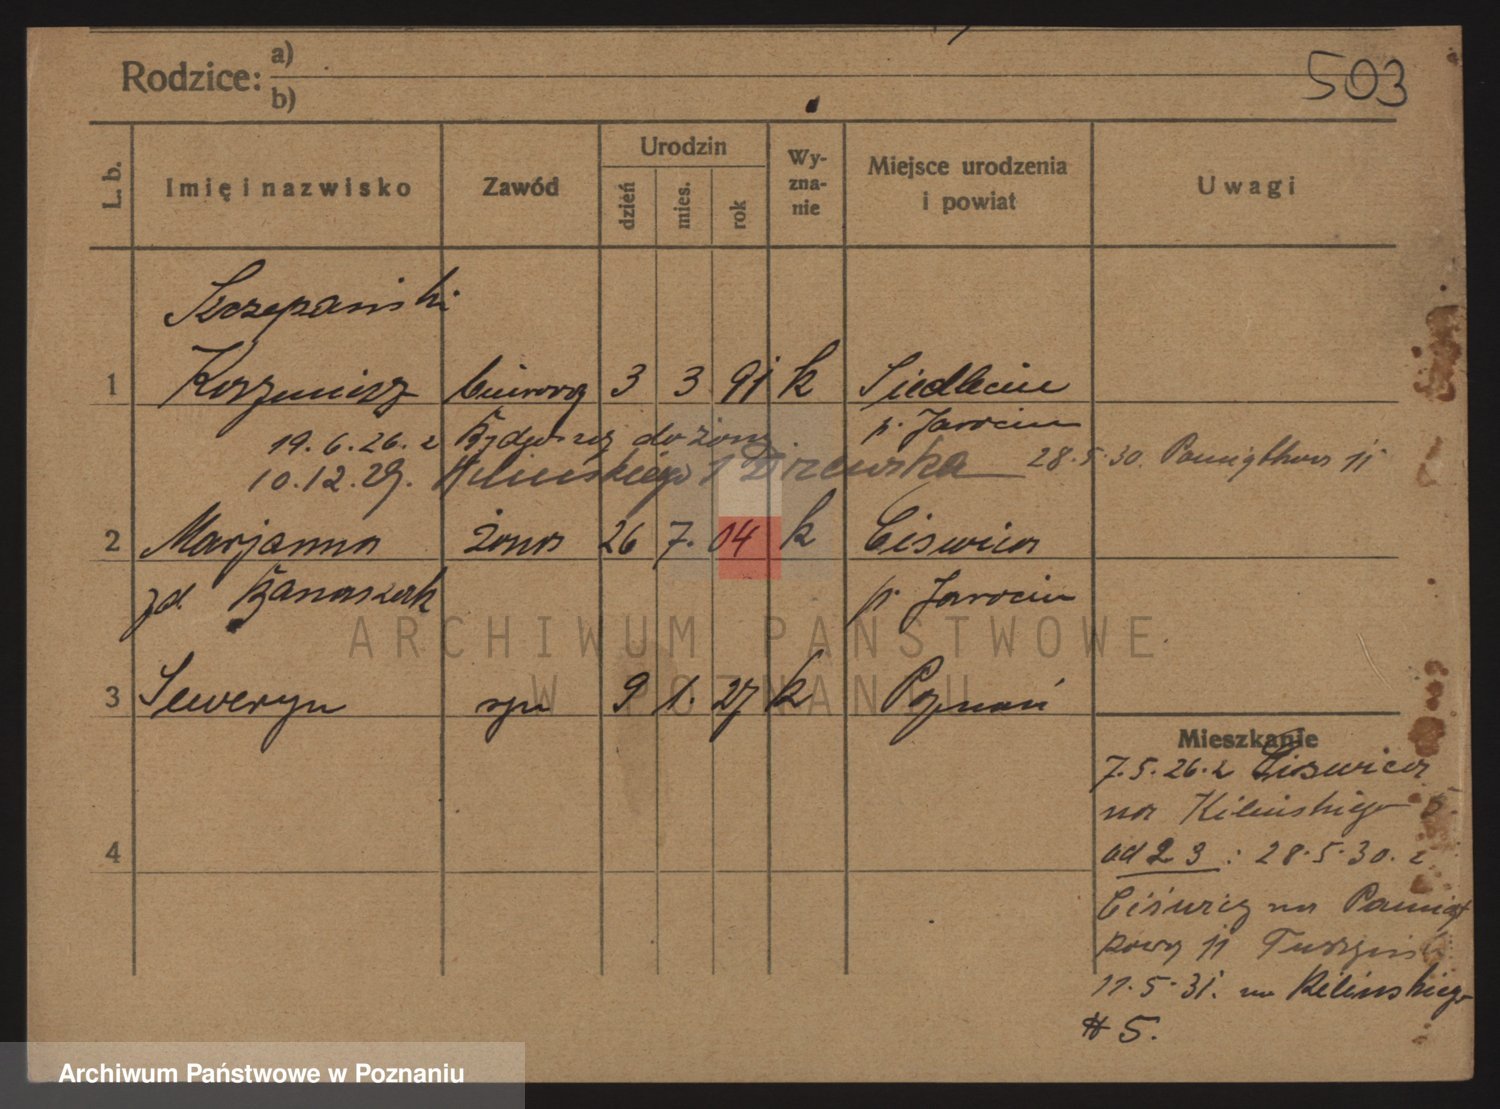 Rodzice:
a)
b)
503
L. b.
Imię i nazwisko
Zawód
Urodzin
dzień
mies.
rok
Wy-
zna-
nie
Miejsce urodzenia
i powiat
Uwagi
Szczepański
1 Kazimierz 3 3 91 k Siedlemin
p. Jarocin
19.6.26. z Bydgoszczy do żony
10.12.29. Kilińskiego 1
28.5.30. Pamiątkowa 11
2 Marjanna żona 26 7. 04 k Ciświca
zd. Banaszak p. Jarocin
3 Seweryn syn 9 1. 27 k Poznań
4
Mieszkanie
7.5.26. z Ciświca
na Kilińskiego 5
od 23: 28.5.30. z
Ciświcy na Pamiąt
kową 11
11.5.31. na Kilińskiego
# 5.
ARCHIWUM PAŃSTWOWE
W POZNANIU
Archiwum Państwowe w Poznaniu